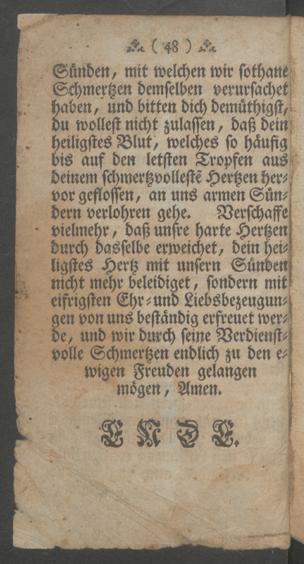 ( 48 )
Sünden, mit welchen wir sothane
Schmertzen demselben verursachet
haben, und bitten dich demüthigst,
du wollest nicht zulassen, daß dein
heiligstes Blut, welches so häufig
bis auf den letsten Tropfen aus
deinem schmertzvollestẽ Hertzen her-
vor geflossen, an uns armen Sün-
dern verlohren gehe. Verschaffe
vielmehr, daß unsre harte Hertzen
durch dasselbe erweichet, dein hei-
ligstes Hertz mit unsern Sünden
nicht mehr beleidiget, sondern mit
eifrigsten Ehr- und Liebsbezeugun-
gen von uns beständig erfreuet wer-
de, und wir durch seine Verdienst-
volle Schmertzen endlich zu den e-
wigen Freuden gelangen
mögen, Amen.
ENDE.